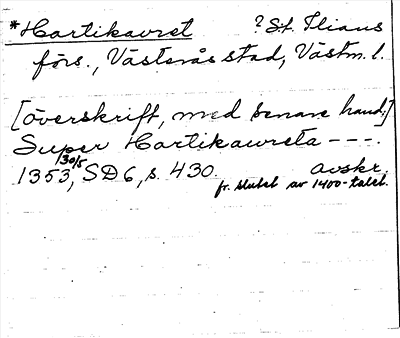 *Hartikavret ? S:t Ilians
förs., Västerås stad, Västm. l.
[överskrift, med senare hand:]
Super Hartikawreta ---.
1353 30/5, SD 6, s. 430. avskr.
fr. slutet av 1400-talet.